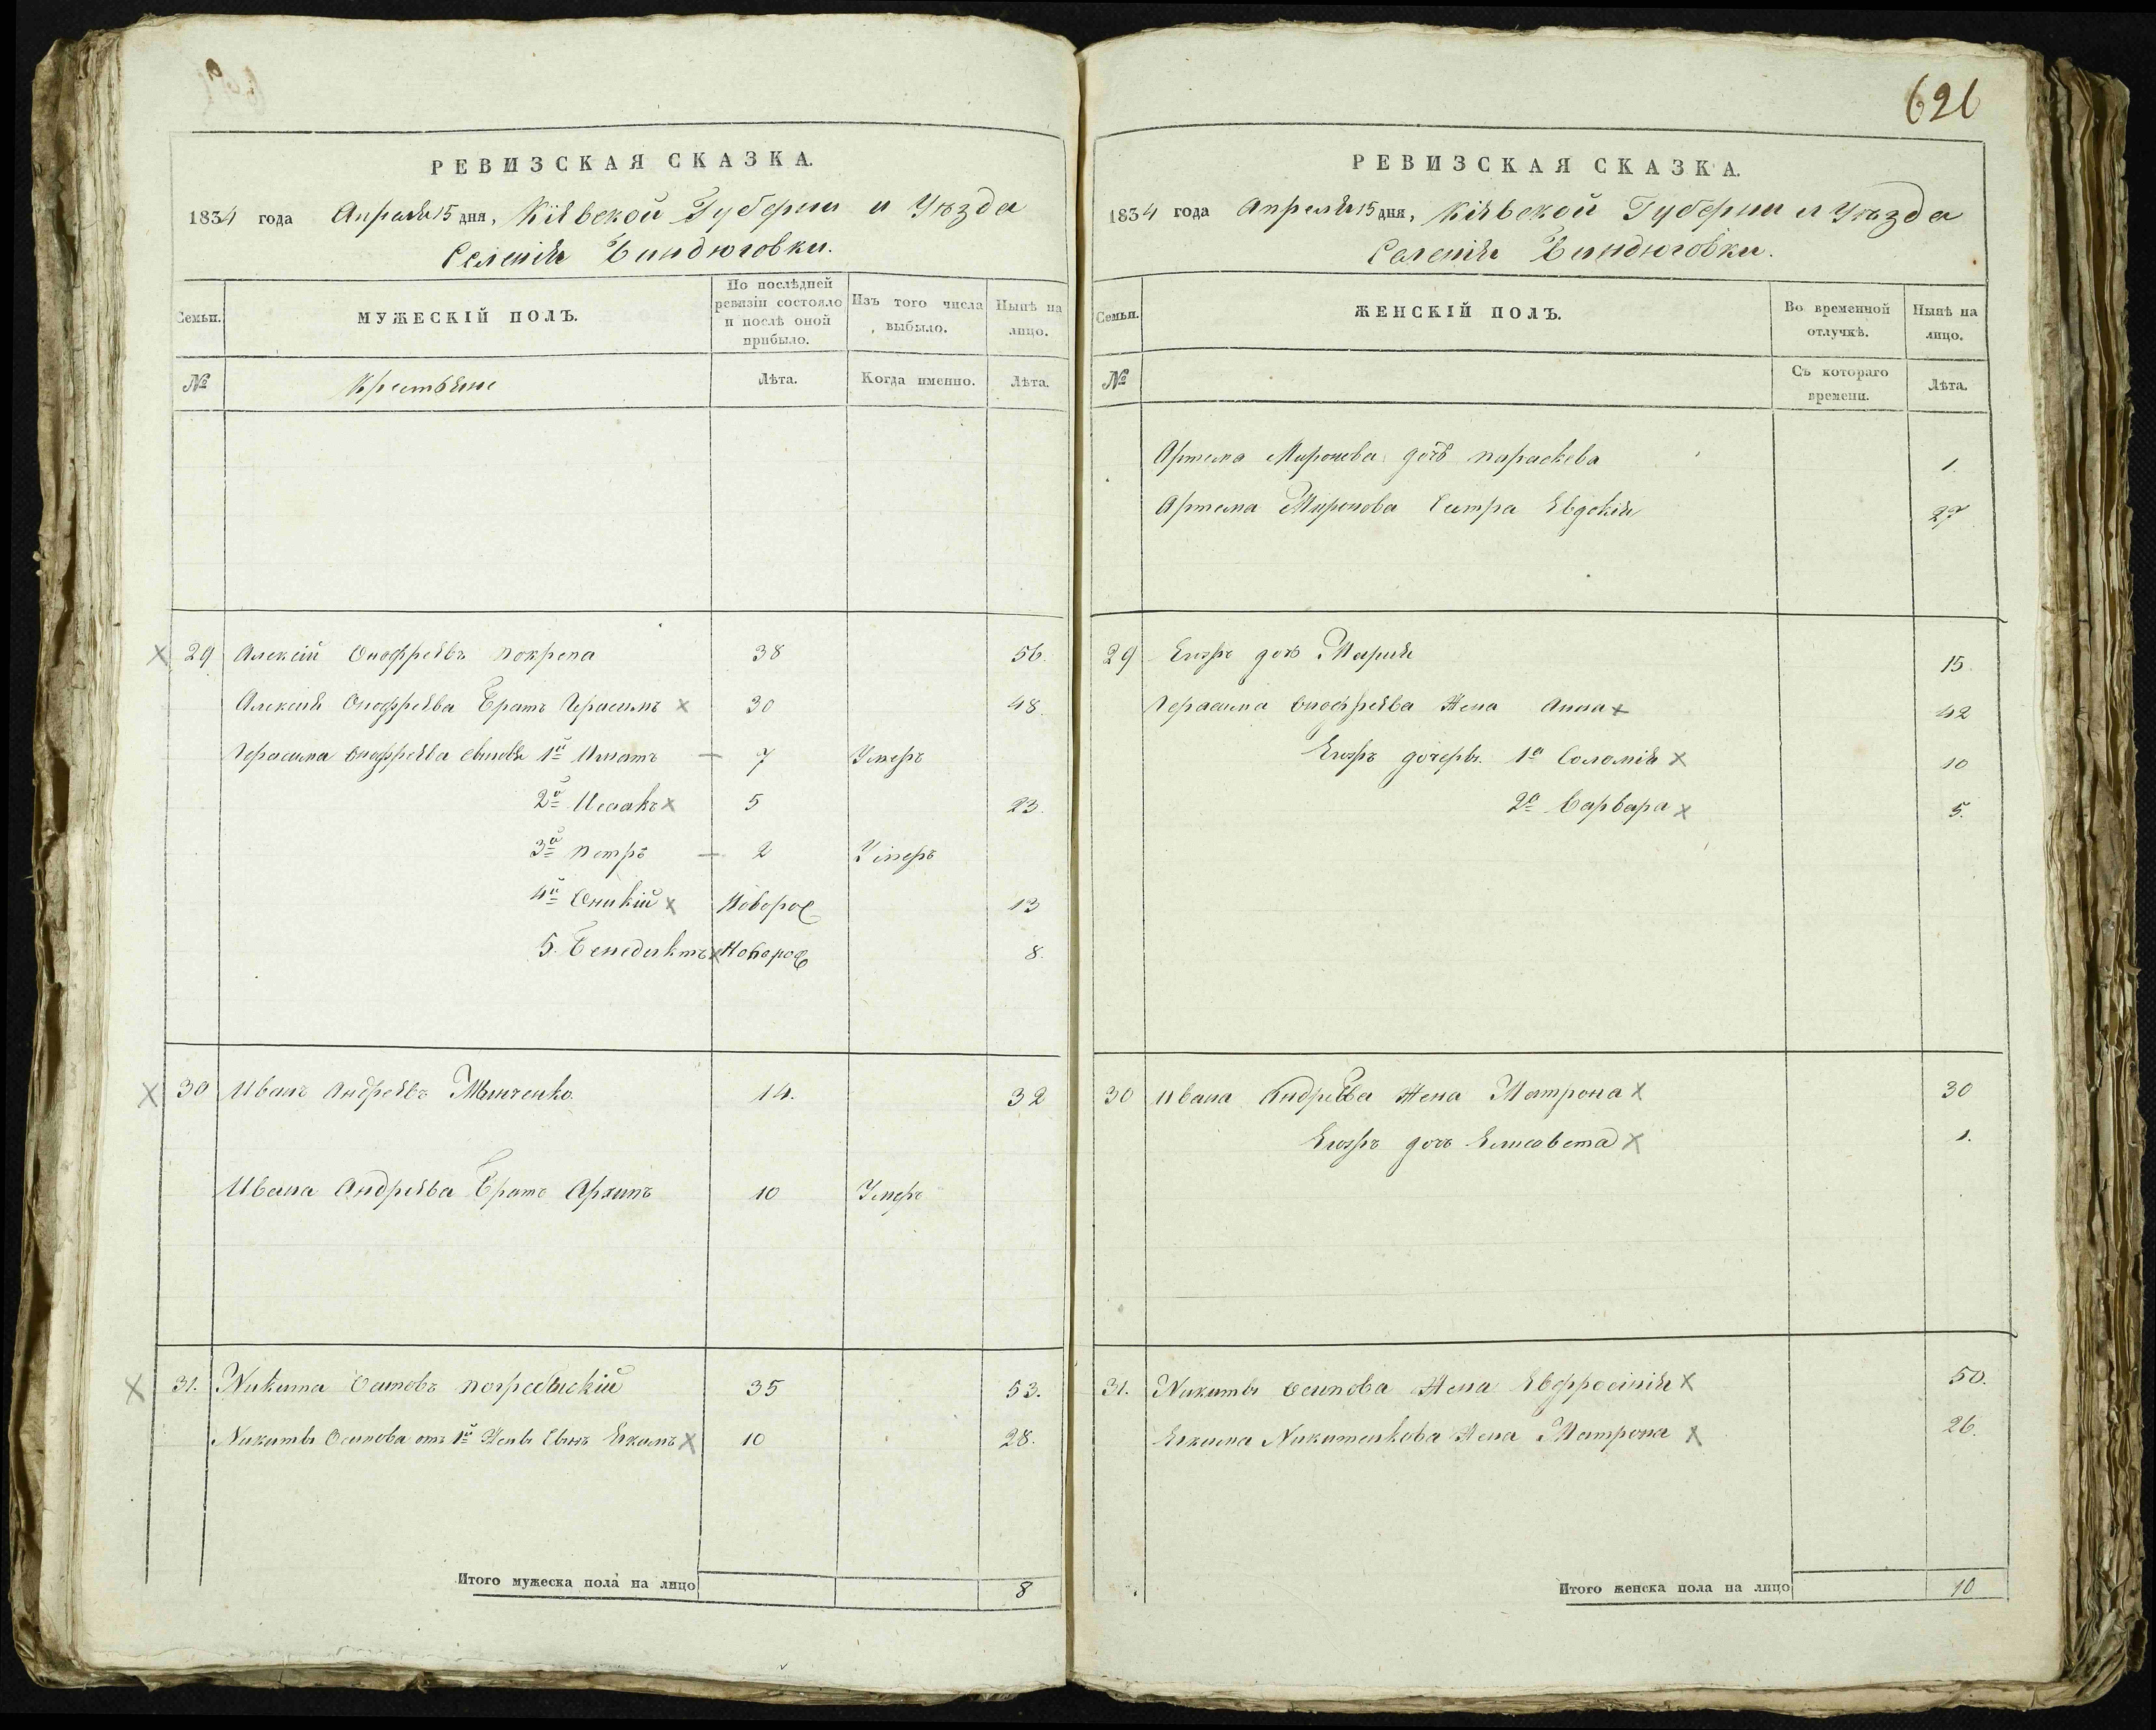 РЕВИЗСКАЯ СКАЗКА.
1834 года Апреля 15 дня, Кіевской Губерніи и Уѣзда
Селенія Биндюговки.
Семьи.
МУЖЕСКІЙ ПОЛЪ.
По послѣдней ревизіи состояло и послѣ оной прибыло.
Изъ того числа выбыло.
Нынѣ на лицо.
№
Крестьяне
Лѣта.
Когда именно.
Лѣта.
29 Алексій Онофреевъ Покрепа 38 56.
Алексія Онофреева Братъ Герасимъ 30 48.
Герасима Онофреева сыновья 1й Игнатъ 7 Умеръ
2й Исаакъ 5 23.
3й Петръ 2 Умеръ
4й Оникій Новорож 13
5. Бенедиктъ Новорож 8.
30 Иванъ Андреевъ 14. 32
Ивана Андреева Братъ Архипъ 10 Умеръ
31. Никита Осиповъ Погребыскій 35 53.
Никиты Осипова отъ 1й Жены Сынъ Екимъ 10 28.
Итого мужеска пола на лицо 8
626
РЕВИЗСКАЯ СКАЗКА.
1834 года Апреля 15 дня, Кіевской Губерніи и Уѣзда
Селенія Биндюговки.
Семьи.
ЖЕНСКІЙ ПОЛЪ.
Во временной отлучкѣ.
Нынѣ на лицо.
№
Съ котораго времени.
Лѣта.
Артема Миронова дочь Параскева 1
Артема Миронова Сестра Евдокія 27
29 Егожъ дочь Марія 15.
Герасима Онофреева Жена Анна 42
Егожъ дочери 1а Соломія 10
2а Варвара 5.
30 Ивана Андреева Жена Матрона 30
Егожъ дочь Елисавета 1.
31. Никиты Осипова Жена Евфросинія 50.
Екима Никитенкова Жена Матрона 26.
Итого женска пола на лицо 10